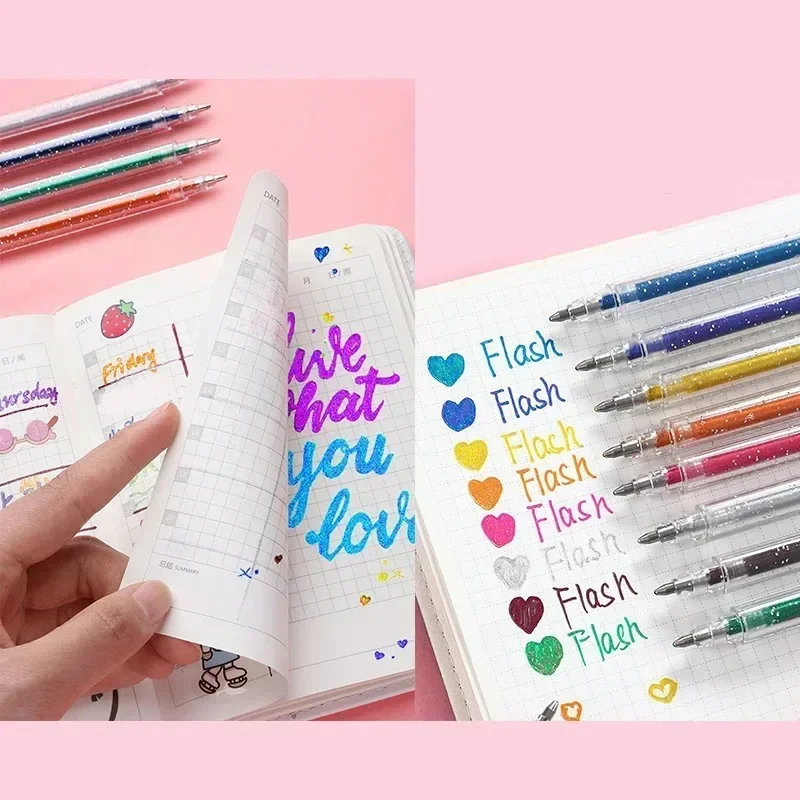 DATE
DATE
日/周
Friday
月 日/周
live
what
you
love
总结 SUMMARY
Flash
Flash
Flash
Flash
Flash
Flash
Flash
Flash